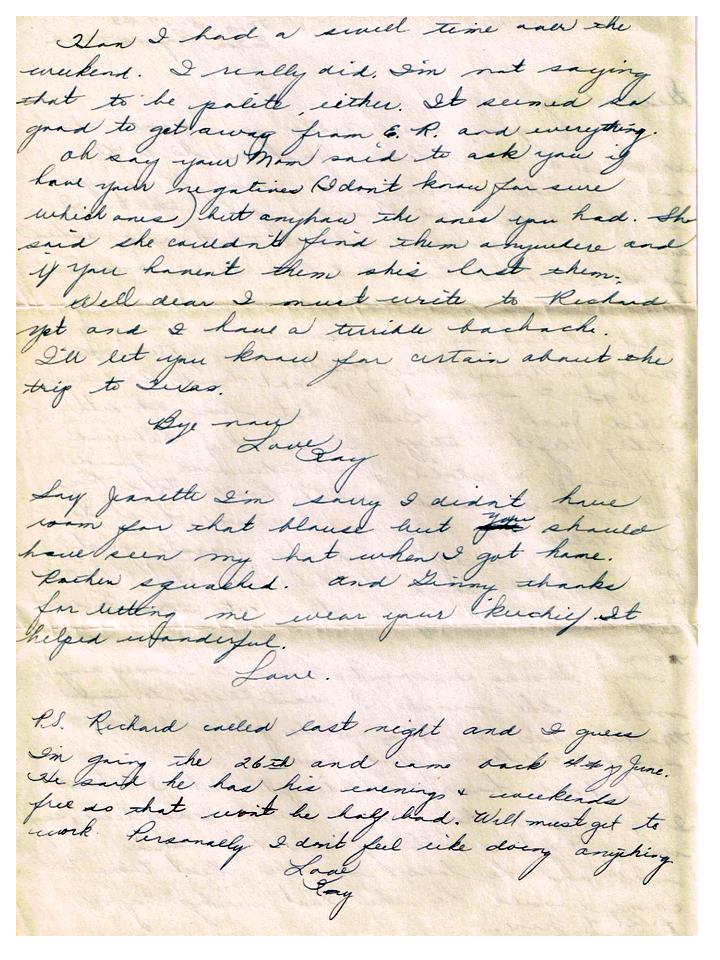 Hon I had a swell time over the
weekend. I really did. I'm not saying
that to be polite, either. It seemed so
good to get away from E. R. and everything.
Oh say your Mom said to ask you if
have your negatives (I don't know for sure
which ones) but anyhow the ones you had. She
said she couldn't find them anywhere and
if you haven't them she's lost them.
Well dear I must write to Richard
yet and I have a terrible backache.
I'll let you know for certain about the
trip to Texas.
Bye now
Love
Kay
Say Jeanette I'm sorry I didn't have
room for that blouse but you should
have seen my hat when I got home.
Rather squashed. And Ginny thanks
for letting me wear your kerchief. It
helped wonderful.
Love.
P.S. Richard called last night and I guess
I'm going the 26th and come back 4th of June.
He said he has his evenings & weekends
free so that won't be half bad. Well must get to
work. Personally I don't feel like doing anything
Love
Kay